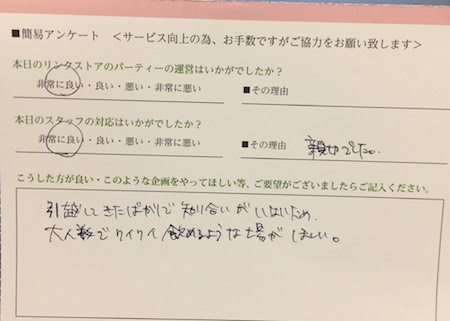 ■簡易アンケート　＜サービス向上の為、お手数ですがご協力をお願い致します＞
本日のリンクストアのパーティーの運営はいかがでしたか？
非常に良い・良い・悪い・非常に悪い　■その理由
本日のスタッフの対応はいかがでしたか？
非常に良い・良い・悪い・非常に悪い　■その理由　親切でした。
こうした方が良い・このような企画をやってほしい等、ご要望がございましたらご記入ください。
引越してきたばかりで知り合いがいないため、
大人数でワイワイ飲めるような場がほしい。